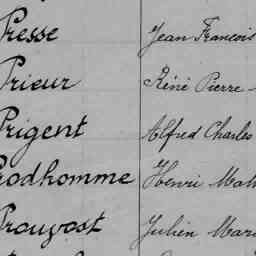 Presse Jean François
Prieur Réné Pierre
Prigent Alfred Charles
Prodhomme Henri
Prouvost Julien